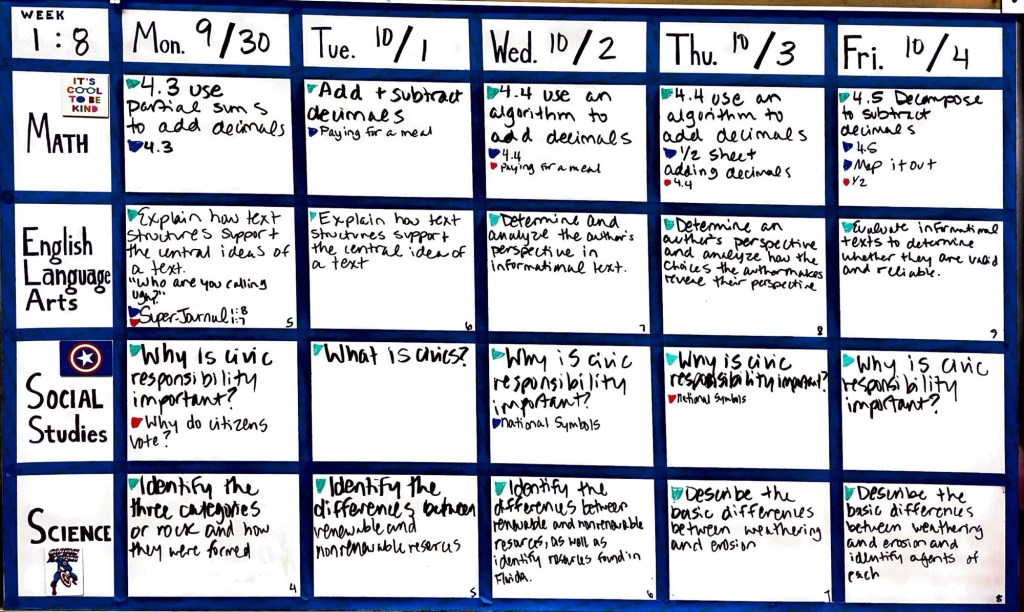 WEEK
1:8
Mon. 9/30
Tue. 10/1
Wed. 10/2
Thu. 10/3
Fri. 10/4
IT'S
COOL
TO BE
KIND
MATH
4.3 use
partial sums
to add decimals
4.3
Add + subtract
decimals
Paying for a meal
4.4 use an
algorithm to
add decimals
4.4
Paying for a meal
4.4 use an
algorithm to
add decimals
1/2 sheet
adding decimals
4.4
4.5 Decompose
to subtract
decimals
4.5
Map it out
1/2
English
Language
Arts
Explain how text
structures support
the central ideas of
a text.
"Who are you calling
ugly?"
Super Journal 1:8
1:7
5
Explain how text
structures support
the central idea of
a text
6
Determine and
analyze the author's
perspective in
informational text.
7
Determine an
author's perspective
and analyze how the
choices the author makes
reveal their perspective
8
Evaluate informational
texts to determine
whether they are valid
and reliable.
9
SOCIAL
Studies
Why is civic
responsibility
important?
Why do citizens
vote?
What is civics?
Why is civic
responsibility
important?
national symbols
Why is civic
responsibility important?
national symbols
Why is civic
responsibility
important?
SCIENCE
Identify the
three categories
or rock and how
they were formed
4
Identify the
differences between
renewable and
nonrenewable resources
5
Identify the
differences between
renewable and nonrenewable
resources, as well as
identify resources found in
Florida.
6
Describe the
basic differences
between weathering
and erosion
7
Describe the
basic differences
between weathering
and erosion and
identify agents of
each
8